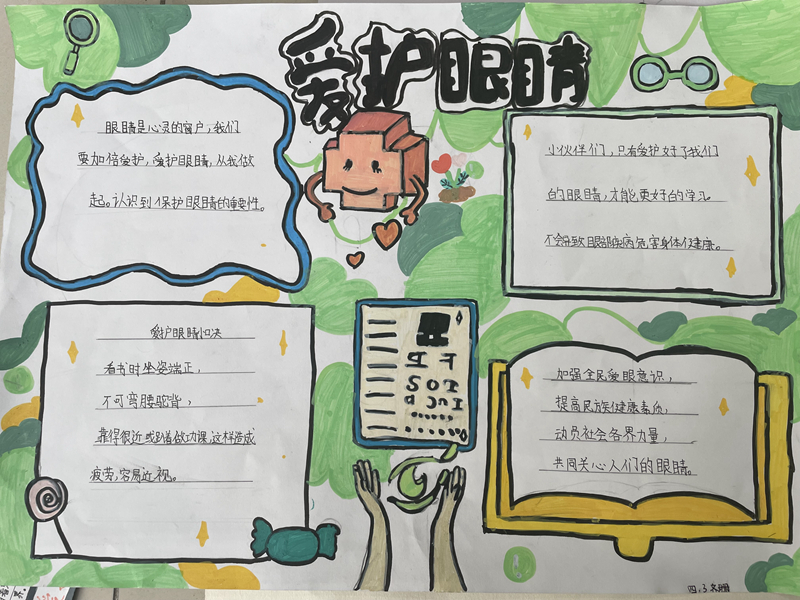 爱护眼睛
眼睛是心灵的窗户,我们
要加倍爱护,爱护眼睛,从我做
起。认识到保护眼睛的重要性。
小伙伴们,只有爱护好了我们
的眼睛,才能更好的学习。
不会导致眼部疾病危害身体健康。
爱护眼睛口决
看书时坐姿端正,
不可弯腰驼背,
靠得很近或趴着做功课,这样造成
疲劳,容易近视。
加强全民爱眼意识,
提高民族健康素质,
动员社会各界力量,
共同关心人们的眼睛。